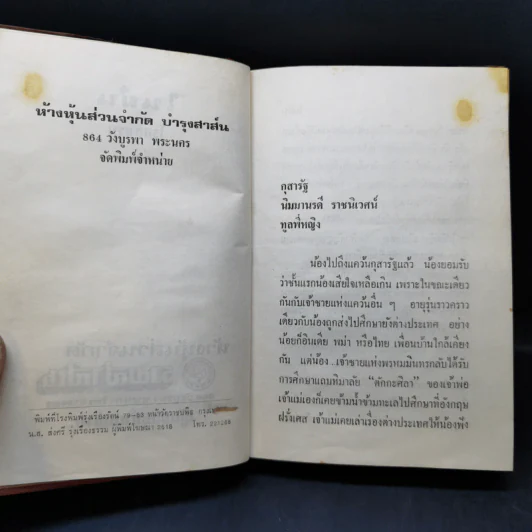 ห้างหุ้นส่วนจำกัด บำรุงสาส์น
864 วังบูรพา พระนคร
จัดพิมพ์จำหน่าย
พิมพ์ที่โรงพิมพ์รุ่งเรืองรัตน์
น.ส. ส่งศรี รุ่งเรืองธรรม ผู้พิมพ์โฆษณา โทร.
กุสารัฐ
นิมมานรดี ราชนิเวศน์
ทูลพี่หญิง
น้องไปถึงแคว้นกุสารัฐแล้ว น้องยอมรับ
ว่าชั้นแรกน้องเสียใจเหลือเกิน เพราะในขณะเดียว
กันกับเจ้าชายแห่งแคว้นอื่น ๆ อายุรุ่นราวคราว
เดียวกับน้องถูกส่งไปศึกษายังต่างประเทศ อย่าง
น้อยก็อินเดีย พม่า หรือไทย เพื่อนบ้านใกล้เคียง
กัน แต่น้อง..เจ้าชายแห่งพรหมมินทรกลับได้รับ
การศึกษาแถบหิมาลัย "ตักกะศิลา" ของเจ้าพ่อ
เจ้าแม่องค์เคยข้ามน้ำข้ามทะเลไปศึกษาที่อังกฤษ
ฝรั่งเศส เจ้าแม่เคยเล่าเรื่องต่างประเทศให้น้องฟัง